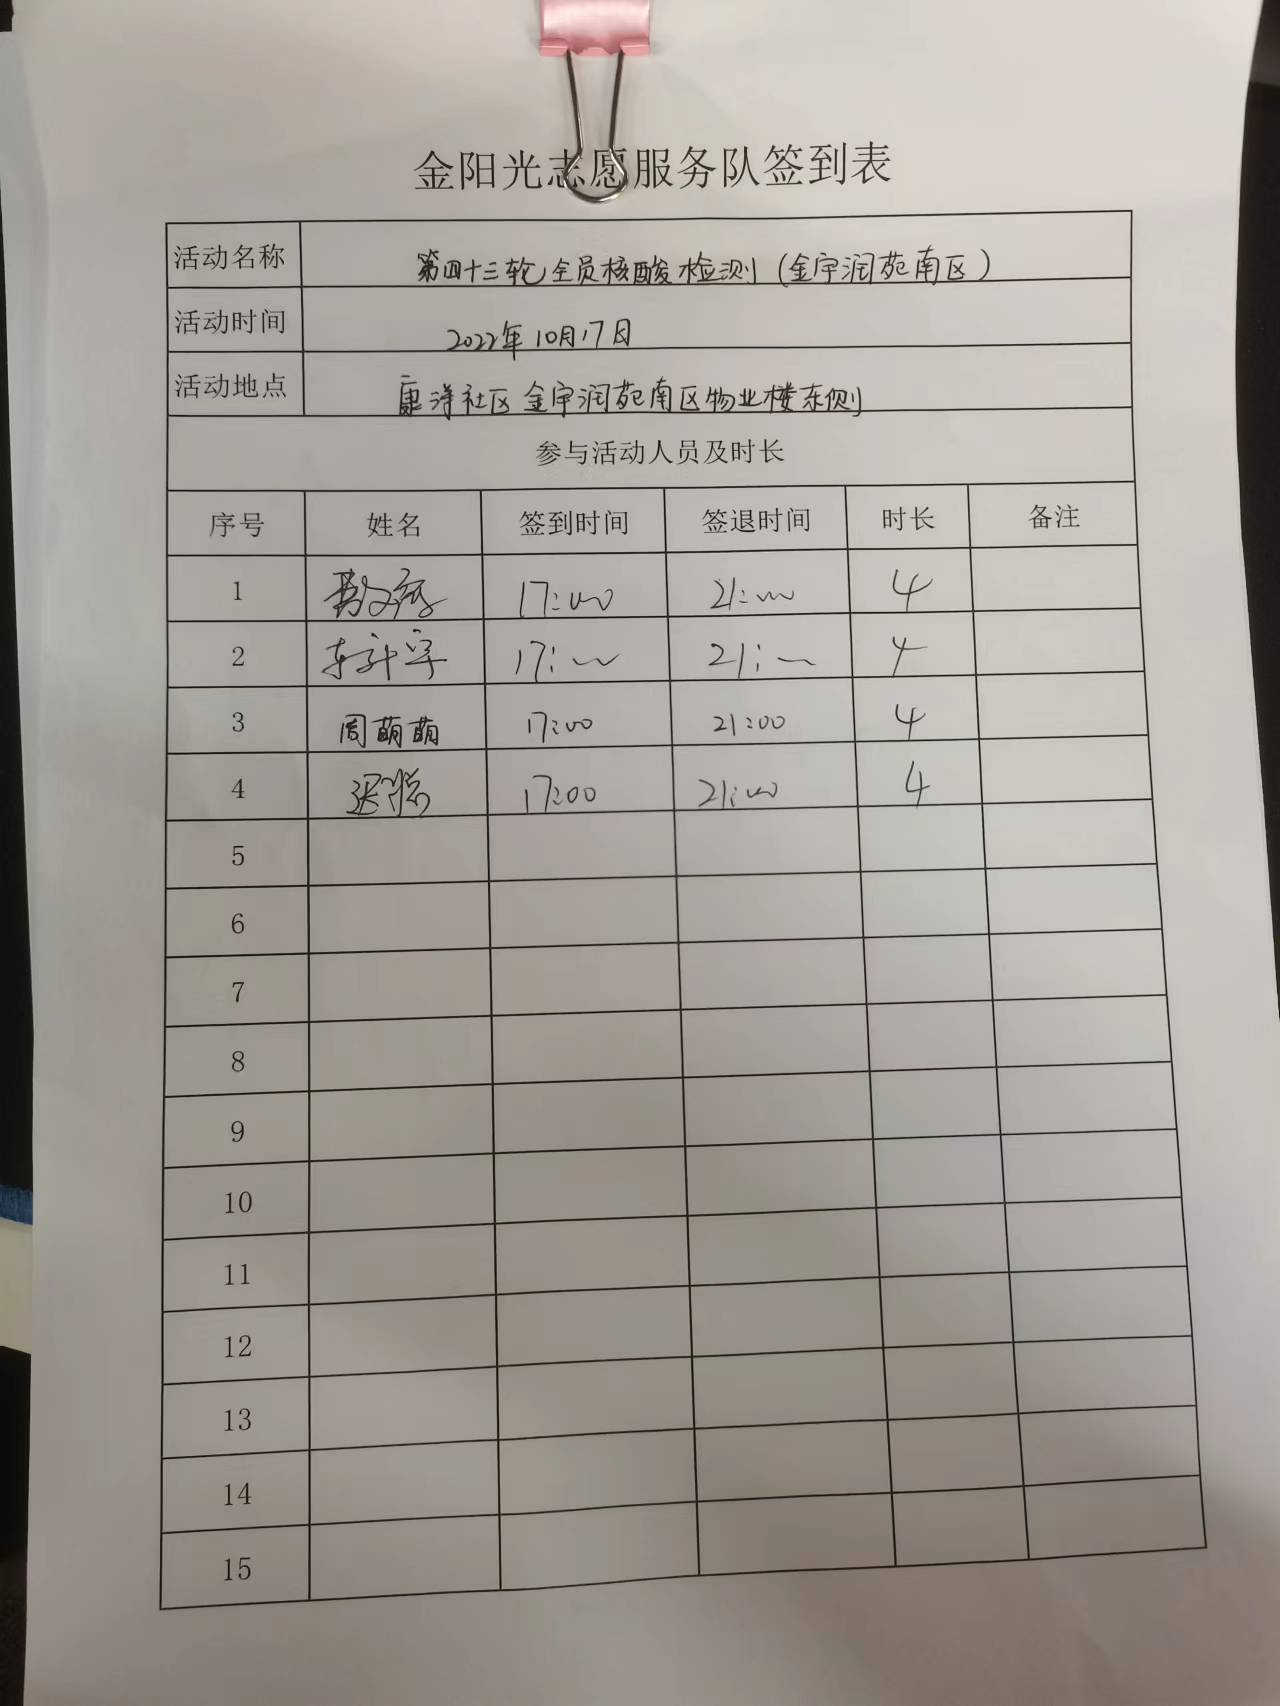 金阳光志愿服务队签到表
活动名称 第四十三轮全员核酸检测(金宇润苑南区)
活动时间 2022年10月17日
活动地点 康洋社区金宇润苑南区物业楼东侧
参与活动人员及时长
序号 姓名 签到时间 签退时间 时长 备注
1 17:00 21:00 4
2 17:00 21:00 4
3 周萌萌 17:00 21:00 4
4 17:00 21:00 4
5
6
7
8
9
10
11
12
13
14
15